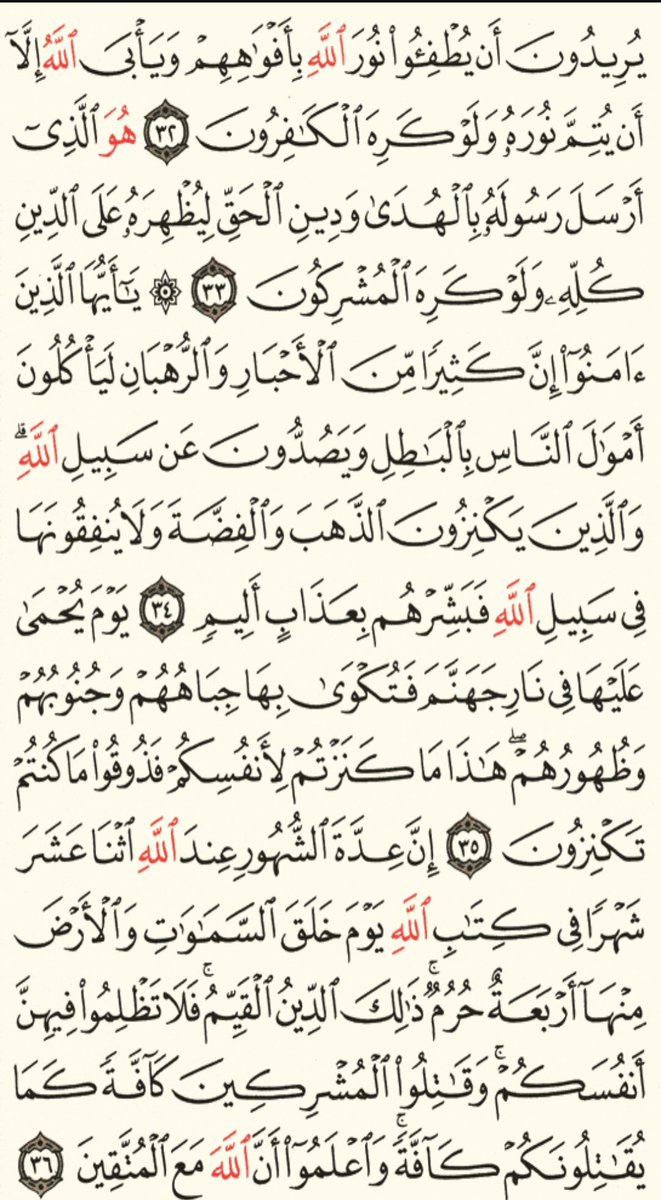 يُرِيدُونَ أَن يُطْفِـُٔوا۟ نُورَ ٱللَّهِ بِأَفْوَٰهِهِمْ وَيَأْبَى ٱللَّهُ إِلَّآ
أَن يُتِمَّ نُورَهُۥ وَلَوْ كَرِهَ ٱلْكَٰفِرُونَ ٣٢ هُوَ ٱلَّذِىٓ
أَرْسَلَ رَسُولَهُۥ بِٱلْهُدَىٰ وَدِينِ ٱلْحَقِّ لِيُظْهِرَهُۥ عَلَى ٱلدِّينِ
كُلِّهِۦ وَلَوْ كَرِهَ ٱلْمُشْرِكُونَ ٣٣ ۞ يَٰٓأَيُّهَا ٱلَّذِينَ
ءَامَنُوٓا۟ إِنَّ كَثِيرًا مِّنَ ٱلْأَحْبَارِ وَٱلرُّهْبَانِ لَيَأْكُلُونَ
أَمْوَٰلَ ٱلنَّاسِ بِٱلْبَٰطِلِ وَيَصُدُّونَ عَن سَبِيلِ ٱللَّهِۗ
وَٱلَّذِينَ يَكْنِزُونَ ٱلذَّهَبَ وَٱلْفِضَّةَ وَلَا يُنفِقُونَهَا
فِى سَبِيلِ ٱللَّهِ فَبَشِّرْهُم بِعَذَابٍ أَلِيمٍ ٣٤ يَوْمَ يُحْمَىٰ
عَلَيْهَا فِى نَارِ جَهَنَّمَ فَتُكْوَىٰ بِهَا جِبَاهُهُمْ وَجُنُوبُهُمْ
وَظُهُورُهُمْۖ هَٰذَا مَا كَنَزْتُمْ لِأَنفُسِكُمْ فَذُوقُوا۟ مَا كُنتُمْ
تَكْنِزُونَ ٣٥ إِنَّ عِدَّةَ ٱلشُّهُورِ عِندَ ٱللَّهِ ٱثْنَا عَشَرَ
شَهْرًا فِى كِتَٰبِ ٱللَّهِ يَوْمَ خَلَقَ ٱلسَّمَٰوَٰتِ وَٱلْأَرْضَ
مِنْهَآ أَرْبَعَةٌ حُرُمٌۚ ذَٰلِكَ ٱلدِّينُ ٱلْقَيِّمُۚ فَلَا تَظْلِمُوا۟ فِيهِنَّ
أَنفُسَكُمْۚ وَقَٰتِلُوا۟ ٱلْمُشْرِكِينَ كَآفَّةً كَمَا
يُقَٰتِلُونَكُمْ كَآفَّةًۚ وَٱعْلَمُوٓا۟ أَنَّ ٱللَّهَ مَعَ ٱلْمُتَّقِينَ ٣٦